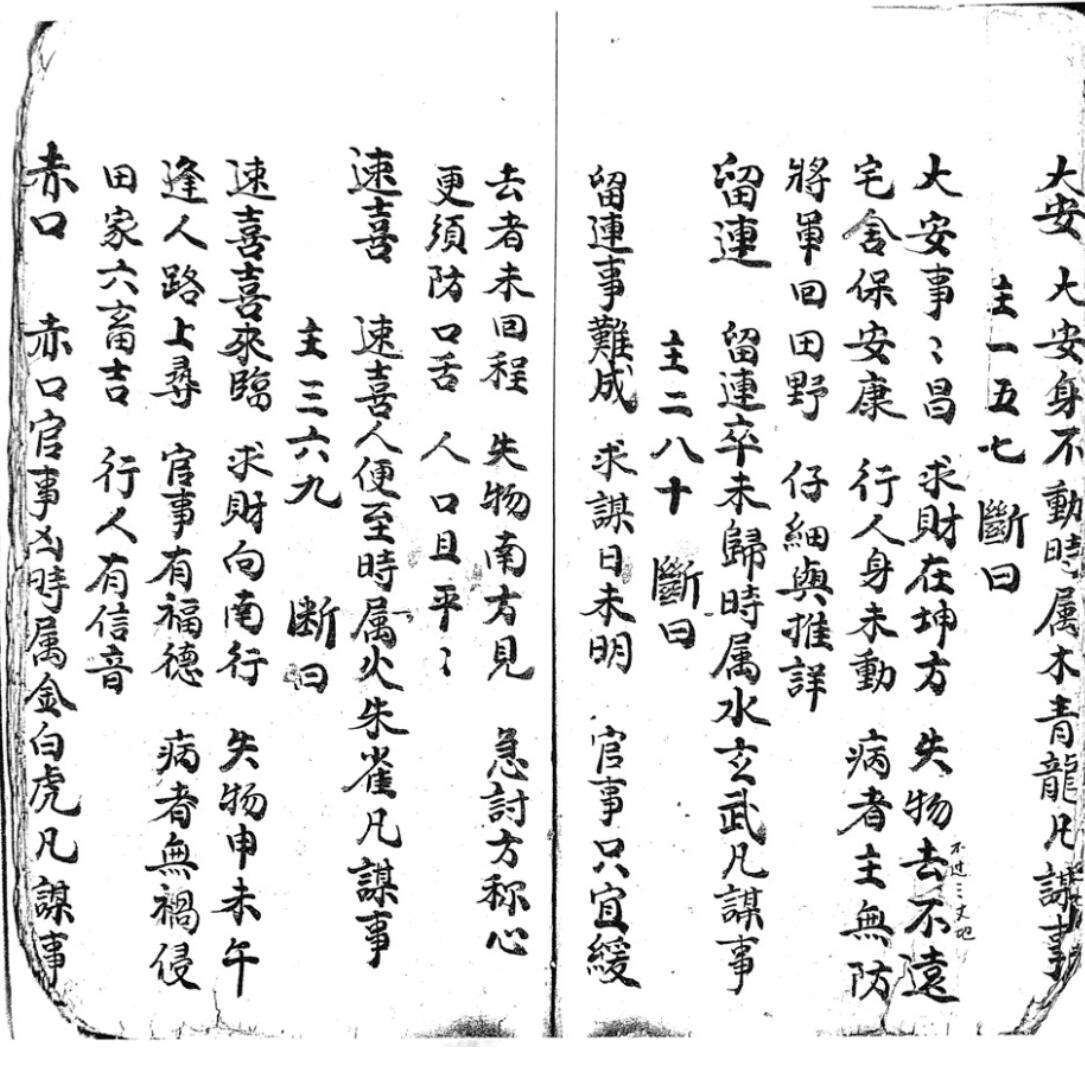 大安 大安身不動時属木青龍凡謀事
主一五七 斷曰
大安事〻昌 求財在坤方 失物去不遠
不过三丈地
宅舍保安康 行人身未動 病者主無防
將軍回田野 仔細與推詳
留連 留連卒未歸時属水玄武凡謀事
主二八十 斷曰
留連事難成 求謀日未明 官事只宜緩
去者未回程 失物南方見 急討方称心
更須防口舌 人口且平〻
速喜 速喜人便至時属火朱雀凡謀事
主三六九 断曰
速喜喜來臨 求財向南行 失物申未午
逢人路上尋 官事有福德 病者無禍侵
田家六畜吉 行人有信音
赤口 赤口官事凶時属金白虎凡謀事